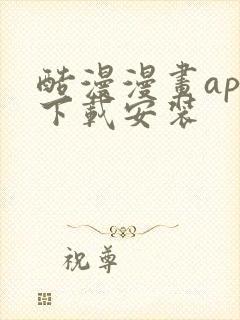 酷漫漫畫ap
下載安裝
祝尊